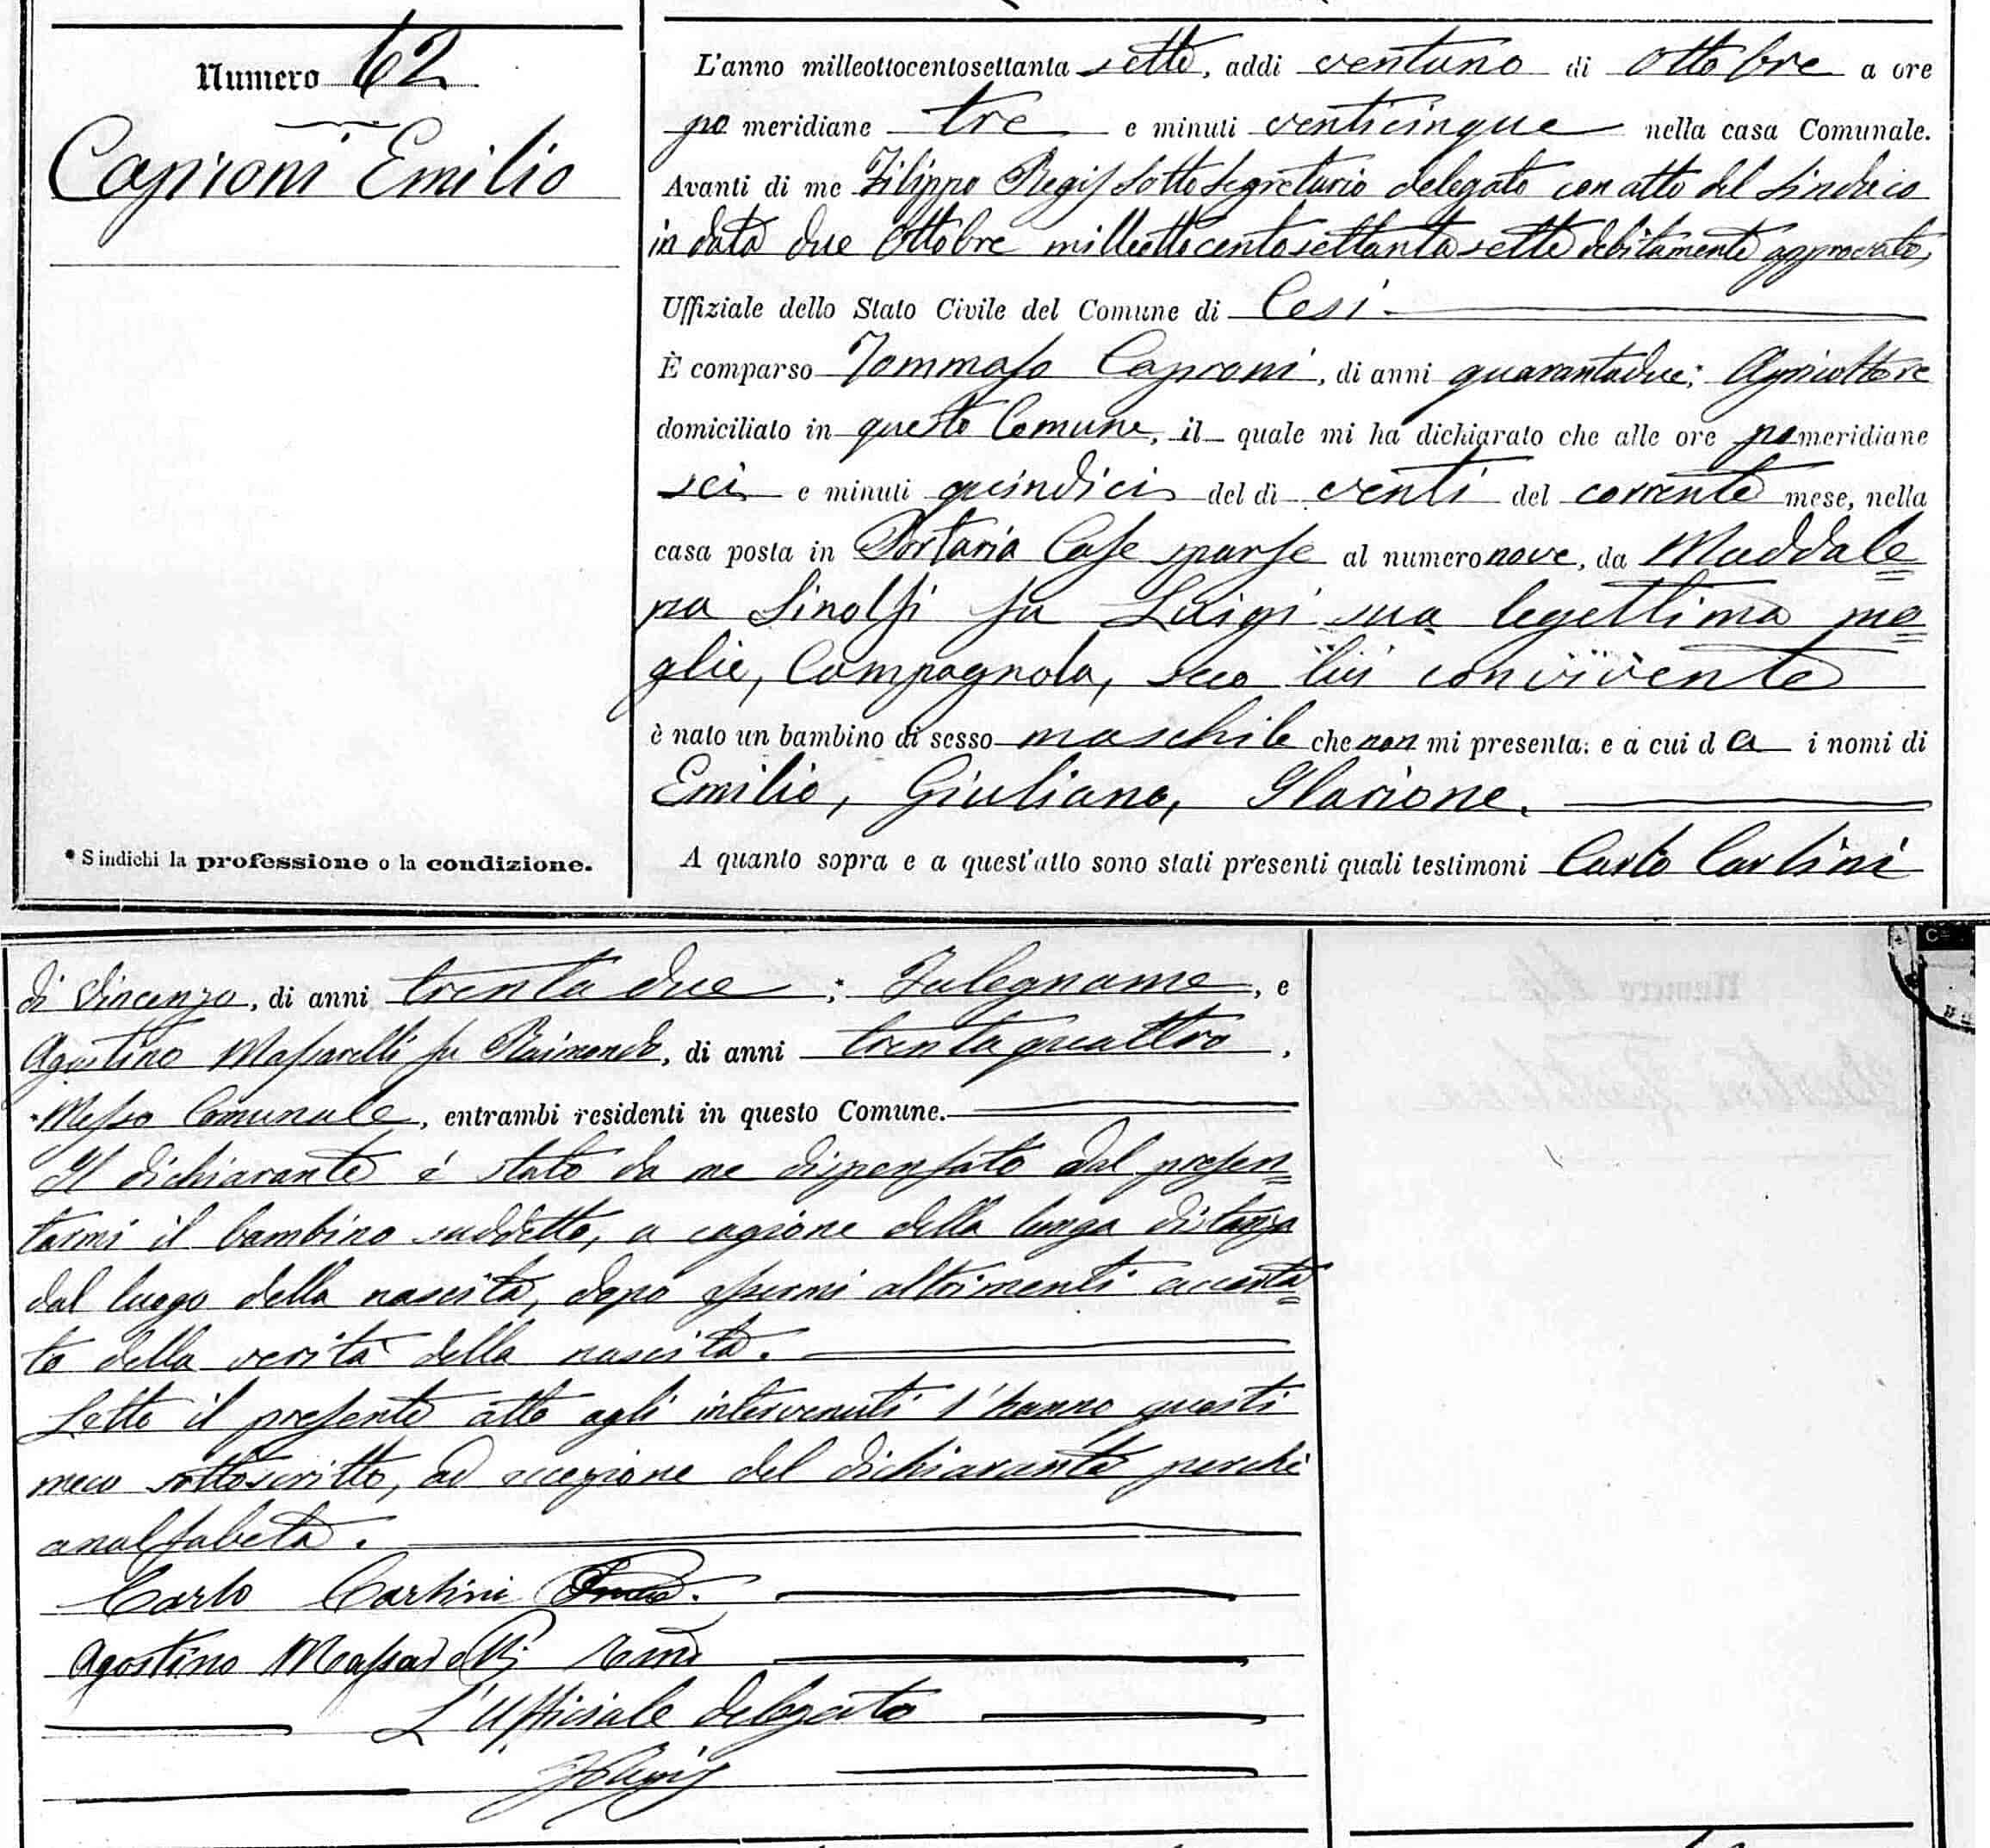 Numero 62
Caproni Emilio
* S'indichi la professione o la condizione.
L'anno milleottocentosettanta sette, addi ventuno di Ottobre a ore
po meridiane tre e minuti venticinque nella casa Comunale.
Avanti di me Filippo Regis Sotto Segretario delegato con atto del Sindaco
in data due Ottobre milleottocentosettantasette debitamente approvato,
Uffiziale dello Stato Civile del Comune di Cesi.
È comparso Tommaso Caproni, di anni quarantadue; Agricoltore
domiciliato in questo Comune, il quale mi ha dichiarato che alle ore po meridiane
sei e minuti quindici del dì venti del corrente mese, nella
casa posta in Portaria Case sparse al numero nove, da Maddale=
na Sinolfi fu Luigi sua legettima mo=
glie, Campagnola, seco lui convivente
è nato un bambino di sesso maschile che non mi presenta, e a cui d a i nomi di
Emilio, Giuliano, Ilarione.
A quanto sopra e a quest'atto sono stati presenti quali testimoni Carlo Carlini
di Vincenzo, di anni trenta due; Falegname, e
Agostino Massarelli fu Raimondo, di anni trentaquattro,
Messo Comunale, entrambi residenti in questo Comune.
Il dichiarante é stato da me dispensato dal presen=
tarmi il bambino suddetto, a cagione della lunga distanza
dal luogo della nascita, dopo essermi altrimenti accerta=
to della verità della nascita.
Letto il presente atto agli intervenuti l'hanno questi
meco sottoscritto, ad eccezione del dichiarante perchè
analfabeta.
Carlo Carlini
Agostino Massarelli
L'Ufficiale delegato
FRegis